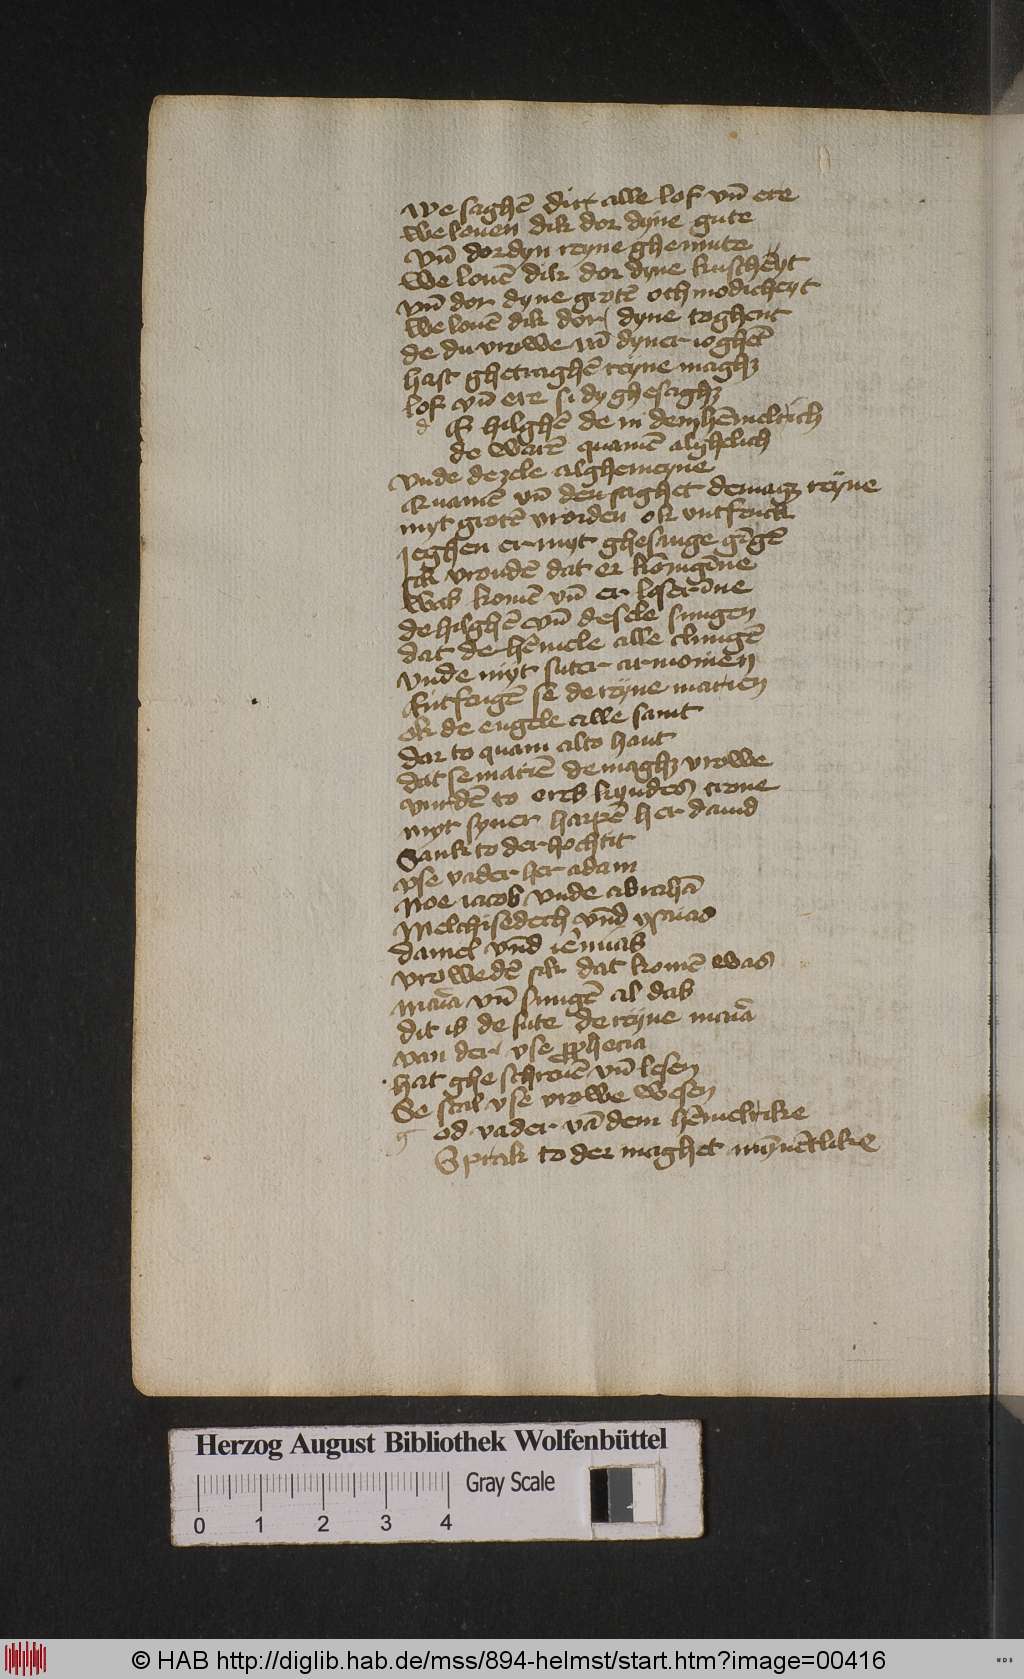 we saghē dir alle lof vn̄ ere
we louen dik dor dyne gute
vn̄ dor dyn reyne ghemute
we louē dik dor dyne kuscheyt
vn̄ dor dyne grotē othmodicheyt
we louē dik dor dyne toghent
de du vrowe in dyner ioghēt
hast ghetraghē reyne maghꝫ
lof vn̄ ere si dy ghesaghꝫ
d E hilghē de in dem hēmelrich
de werē quamē alghelich
vnde de zele alghemeyne
Quamē vn̄ den saghet de magꝫ reyne
myt grotē vrorden ok vntfenck
Jeghen er myt ghesange gīgē
sik vroudē dat er konigīne
was komē vn̄ er loserīne
de hilghē vn̄ de sele sungen
dat de hēmele alle clungē
vnde myt suter armonien
Entfengē se de reyne marien
ok de engele alle samt
dar to quam alto hant
dat se mariē de maghꝫ vrowe
vurdē to eres kyndes trone
myt syner harpē her dauid
Sank to der hochtit
vse vader her adam
Noe iacob vnde abrahā
Melchisedech vnd ysaias
daniel vnd iēmias
vrowedē sik dat komē was
maīa vn̄ sungē al das
dit is de sute de reyne maīa
van der vse prophecia
hat ghe schreuē vn̄ lesen
Se scal vse vrowe wesen
g od vader vā dem hēmelrike
Sprak to der maghet mȳnētlike
Herzog August Bibliothek Wolfenbüttel
Gray Scale
0 1 2 3 4
© HAB http://diglib.hab.de/mss/894-helmst/start.htm?image=00416